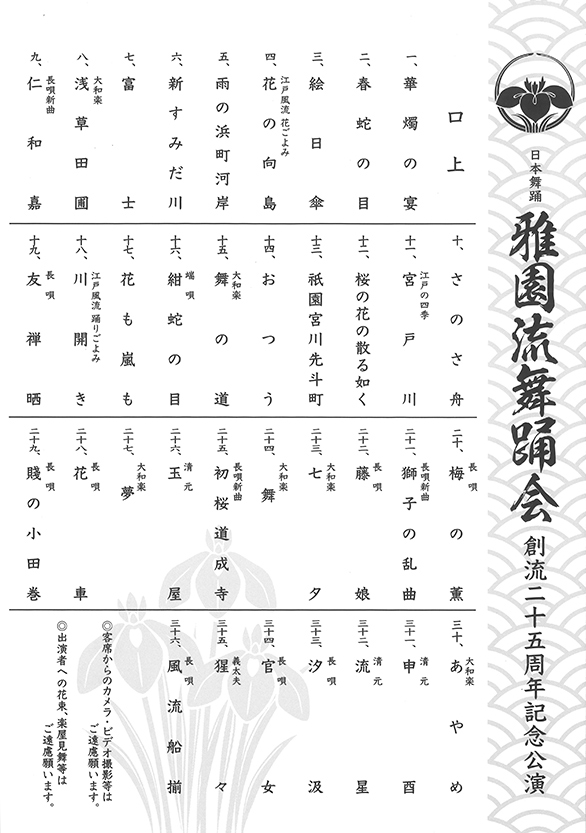 日本舞踊
雅園流舞踊会
創流二十五周年記念公演
口上
一、華燭の宴
二、春蛇の目
三、絵日傘
四、江戸風流 花ごよみ
花の向島
五、雨の浜町河岸
六、新すみだ川
七、富士
八、大和楽
浅草田圃
九、長唄新曲
仁和嘉
十、さのさ舟
十一、江戸の四季
宮戸川
十二、桜の花の散る如く
十三、祇園宮川先斗町
十四、おつう
十五、大和楽
舞の道
十六、端唄
紺蛇の目
十七、花も嵐も
十八、江戸風流 踊りごよみ
川開き
十九、長唄
友禅晒
二十、長唄
梅の薫
二十一、長唄新曲
獅子の乱曲
二十二、長唄
藤娘
二十三、大和楽
七夕
二十四、大和楽
舞
二十五、長唄新曲
初桜道成寺
二十六、清元
玉屋
二十七、大和楽
夢
二十八、長唄
花車
二十九、長唄
賤の小田巻
三十、大和楽
あやめ
三十一、清元
申酉
三十二、清元
流星
三十三、長唄
汐汲
三十四、長唄
官女
三十五、義太夫
猩々
三十六、長唄
風流船揃
◎客席からのカメラ・ビデオ撮影等は
ご遠慮願います。
◎出演者への花束、楽屋見舞等は
ご遠慮願います。